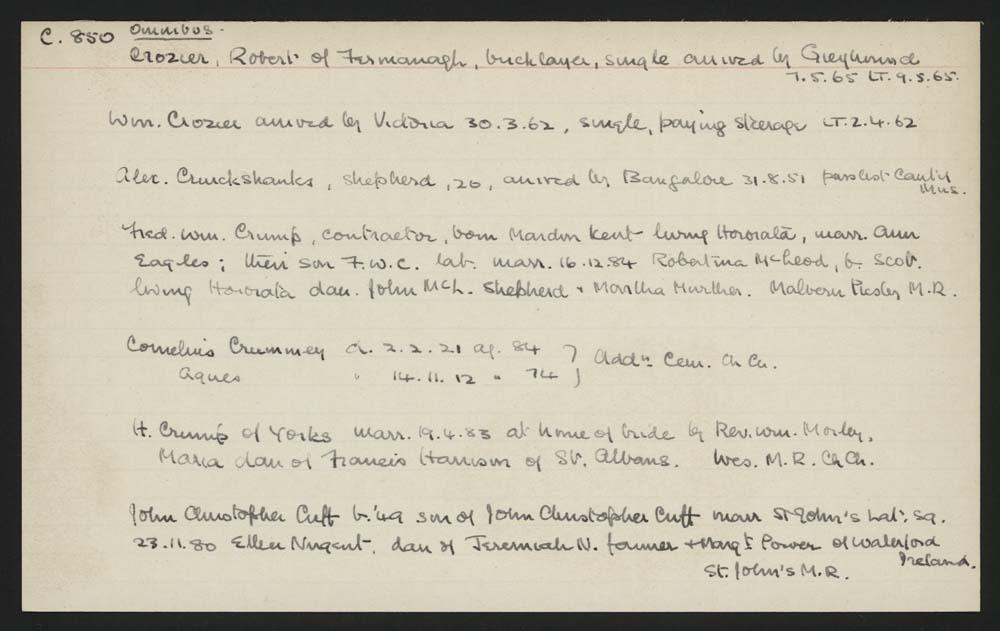 C. 850 Omnibus.
Crozier, Robert of Fermanagh, bricklayer, single arrived by Greyhound
7.5.65 LT. 9.5.65.
Wm. Crozier arrived by Victoria 30.3.62, single, paying steerage LT. 2.4.62
Alex. Cruickshanks, shepherd, 20, arrived by Bangalore 31.8.51 pass list Canty
Mus.
Fred. Wm. Crump, contractor, born Mardon Kent living Hororata, marr. Ann
Eagles; their son F.W.C. lab. marr. 16.12.84 Robatina McLeod, b. Scot.
living Hororata dau. John McL. Shepherd + Murther. Malvern Presby M.R.
Cornelius Crummey d. 2.2.21 ag. 84 } Addn. Cem. Ch Ch.
Agnes " 14.11.12 " 74
H. Crump of Yorks marr. 19.4.83 at home of bride by Rev. Wm. Morley,
Maria dau of Francis Harrison of St. Albans. Wes. M.R. Ch Ch.
John Christopher Cuff b. '49 son of John Christopher Cuff marr St John's Lat: Sq.
23.11.80 Ellen Nugent, dau of Jeremiah N. farmer + Margt Power of Waterford
Ireland.
St. John's M.R.